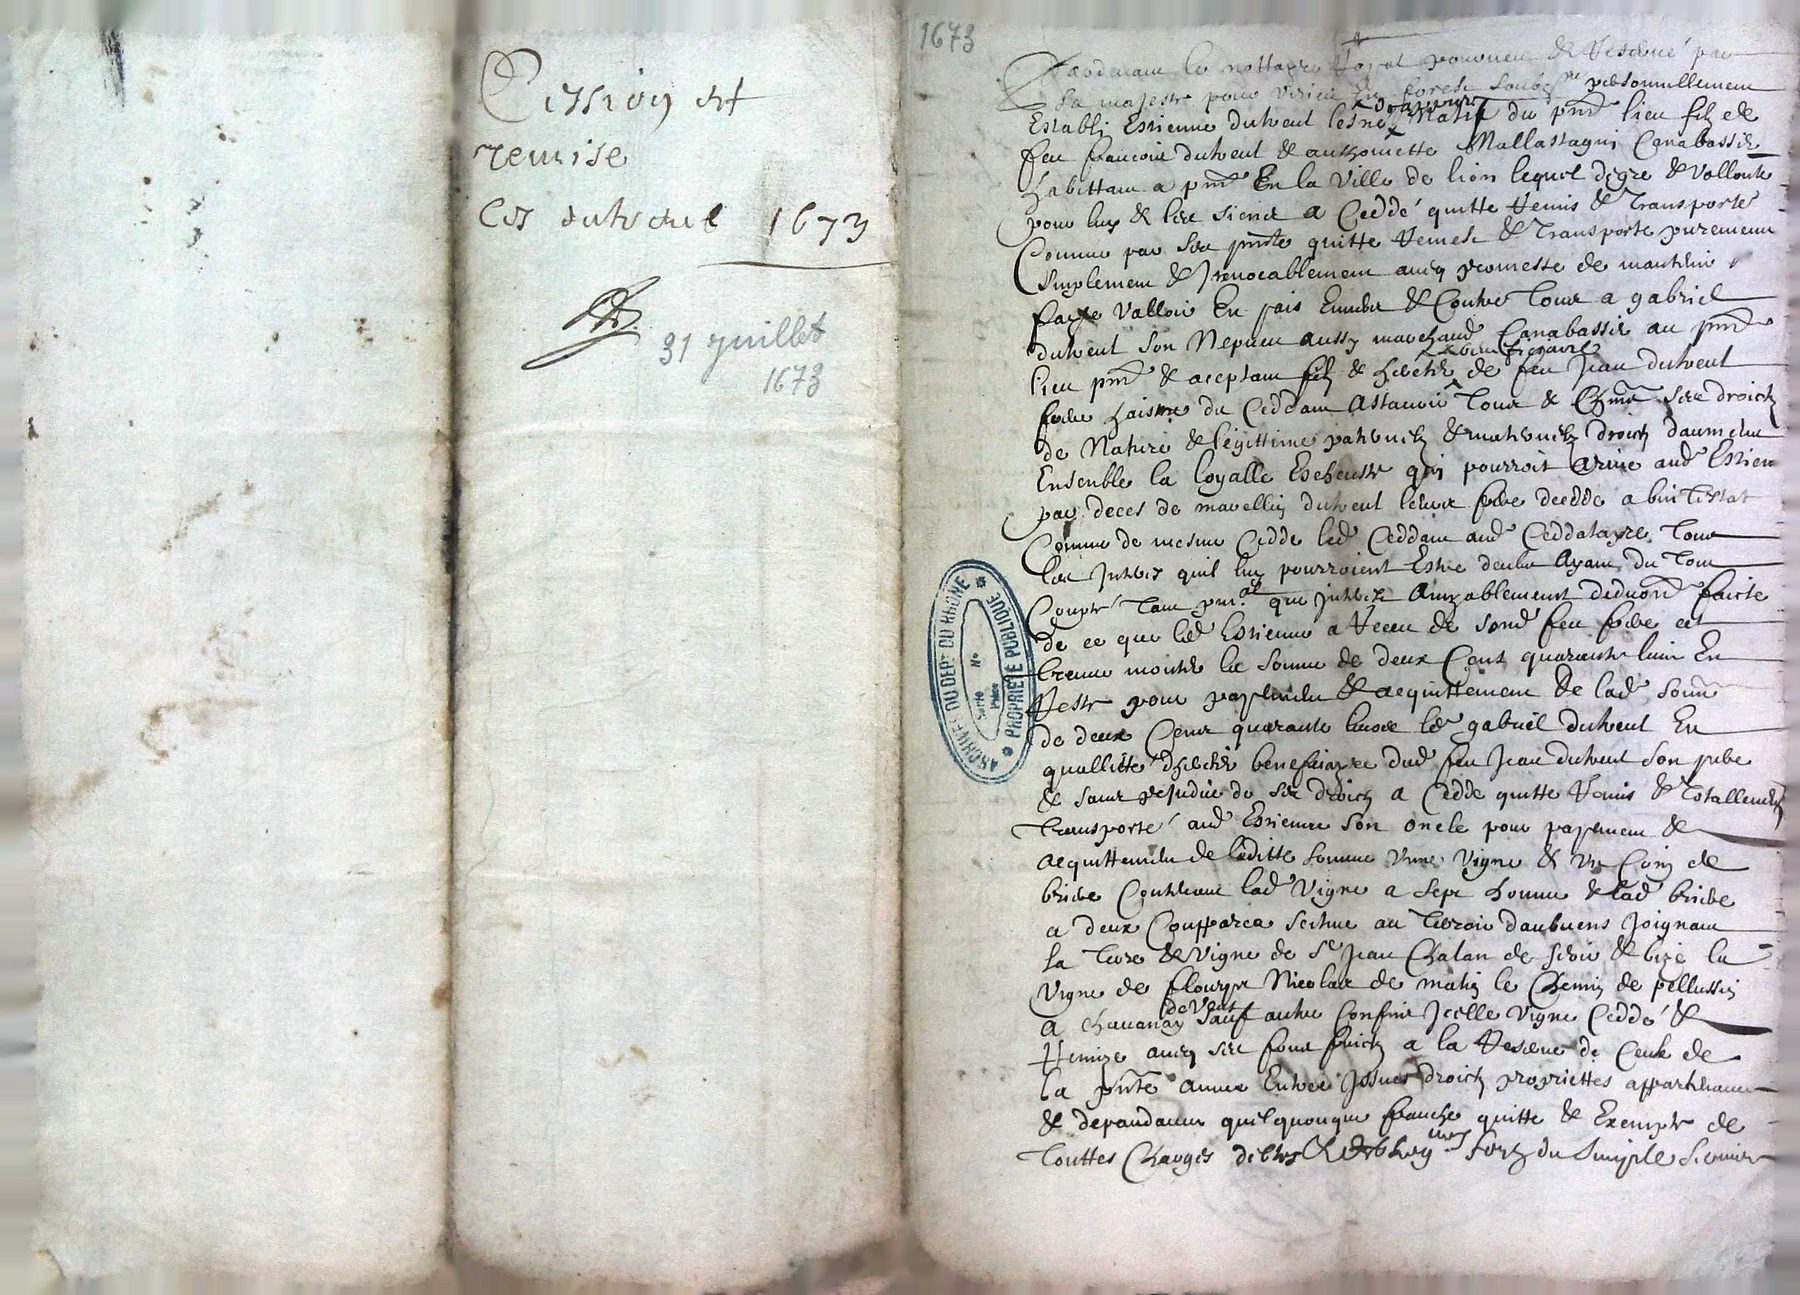 Cession et
remise
Les dutreul 1673
31 Juillet
1673
1673
Pardevant le nottaire Royal pourveu & Reserué par
Sa majesté pour virieu en forest soubzne personnellement
Establi Estienne dutreul lesné Natif du pnt lieu filz de
marchand
feu francois dutreul & anthoinette Mallassagni Canabassier
habittant a pnt En la Ville de lion lequel de gre & Vollonte
pour luy & les siens a Ceddé quitte Remis & Transporté
Comme par ses pntes quitte Remet & Transporte purement
Simplement & Jrreuocablement aueq promesse de maintenir
faire Valloir En paix Enuers & Contre Tous a gabriel
dutreul Son Nepueu aussy marchand Canabassier au pnt
lieu pnt & aceptant filz & heritier de feu Jean dutreul
beneficiaire
frere haisne du Ceddant Assauoir Tous & Chns ses droictz
de Nature & légittime paternelz & maternelz droictz
Ensemble la loyalle Escheutte qui pourroit and Estien
par deces de dutreul leur frere decedde abintestat
Comme de mesme Cedde led Ceddant and Ceddatayre Tous
les Jnteretz quil luy pourroient Estre deubz Ayant du Tout
Compté Tant pnal que Jnteretz Amyablement deduon faicte
de ce que led Estienne a Receu de sond feu frere et
treuue monter la somme de deux Cent quarante liures En
Reste pour payement & acquittement de lad somme
de deux Cens quarante liures led gabriel dutreul En
quallitté dheritier beneficiayre dud feu Jean dutreul son pere
& sans prejudice de ses droictz a Cedde quitte Remis & Totallement
Transporté and Estienne Son oncle pour payement &
acquittement de laditte somme Vne Vigne & Vn Coin de
briere Contenant lad Vigne a sept homme & lad briere
a deux Coupparea scitue au Terroir daubuens Joignant
la Terre & Vigne de Sr Jean Chalan de soir & bize la
Vigne de fleurye Nicolas de matin le Chemin de pellussin
a chauanay de Vent Sauf autre Confins Jcelle Vigne Ceddé &
Remize aueq ses fons fruictz a la Reserue de Ceux de
la pnte annee Entree Jssues droictz propriettes appartenances
& dependances quelquonque franche quitte & Exempte de
Touttes Charges debtes & fors du Simple
ARCHIVES DU DEPT DU RHONE
PROPRIÉTÉ PUBLIQUE
Série
No
Pièce